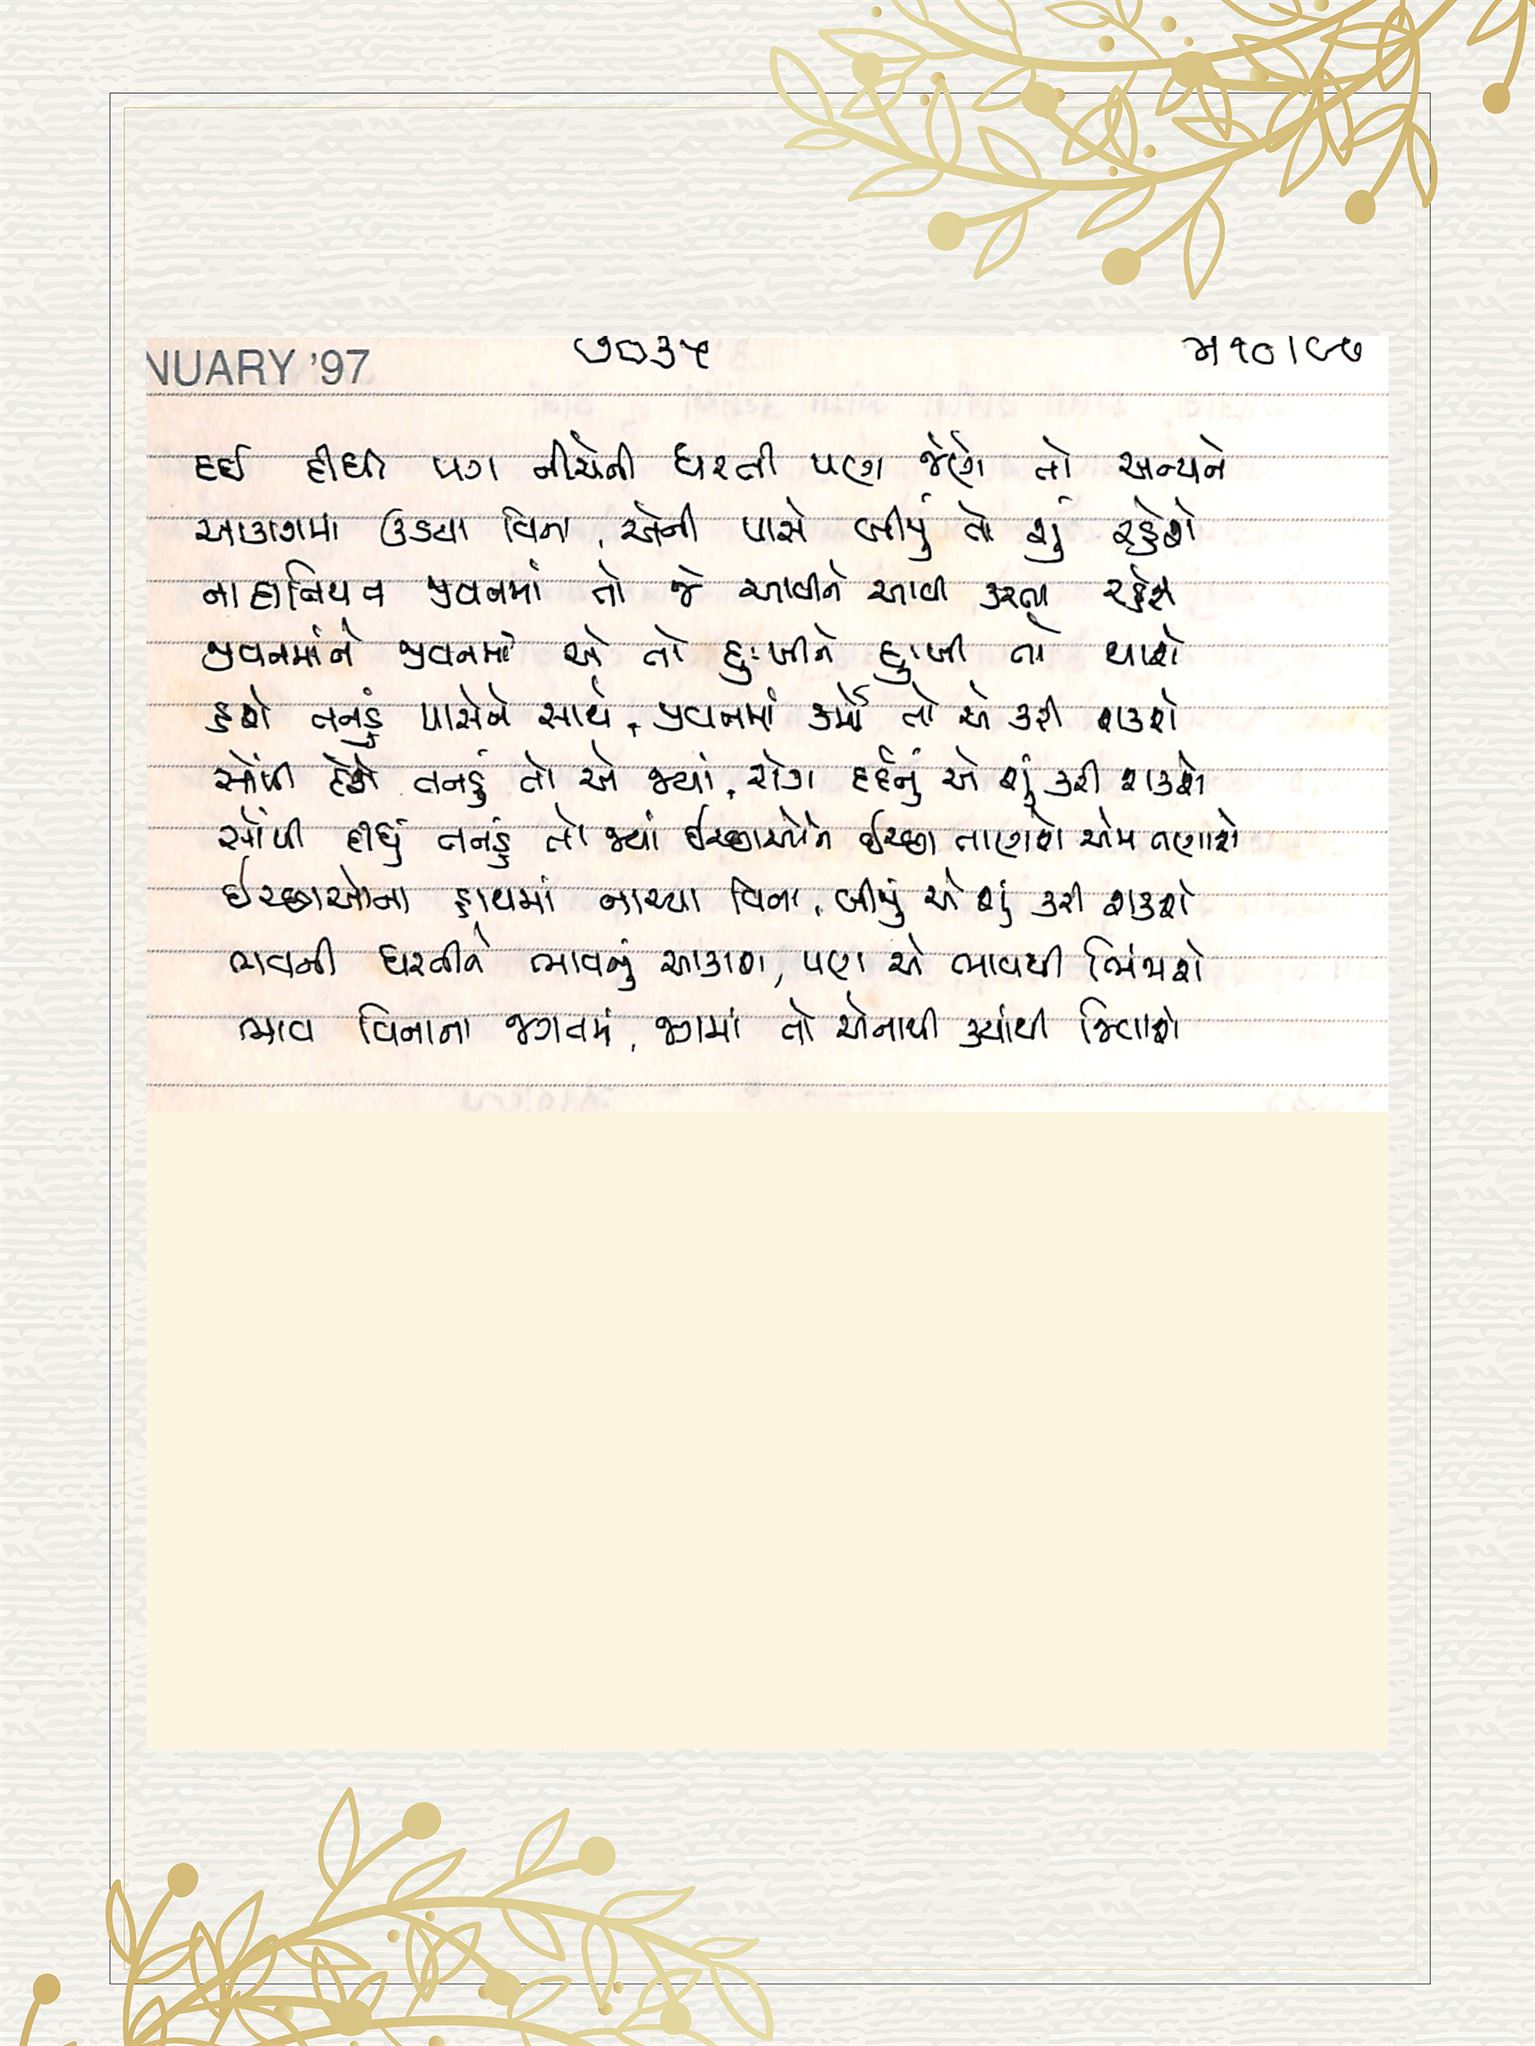 NUARY '97
૭૦૩૫
દઈ દીધી પગ નીચેની ધરતી પણ જેણે તો અન્યને
આકાશમાં ઉડયા વિના, એની પાસે બીજું તો શું રહેશે
જીવનમાં તો જે આવીને આવી કરતા રહેશે
જીવનમાંને જીવનમાં એ તો દુઃખીને દુઃખી તો થાશે
હશે તનડું પાસેને સાથે, જીવનમાં કર્મો તો એ કરી શકશે
સોંપી દેશે તનડું તો એ જ્યાં, રોગ દર્દનું એ શું કરી શકશે
સોંપી દીધું તનડું તો જ્યાં ઈચ્છાઓને ઈચ્છા તાણશે એમ તણાશે
ઈચ્છાઓના હાથમાં નાચ્યા વિના, બીજું એ શું કરી શકશે
ભાવની ધરતીને ભાવનું આકાશ, પણ એ ભાવથી ભિંજાશે
ભાવ વિનાના જગતમાં, જગમાં તો એનાથી ક્યાંથી જિવાશે